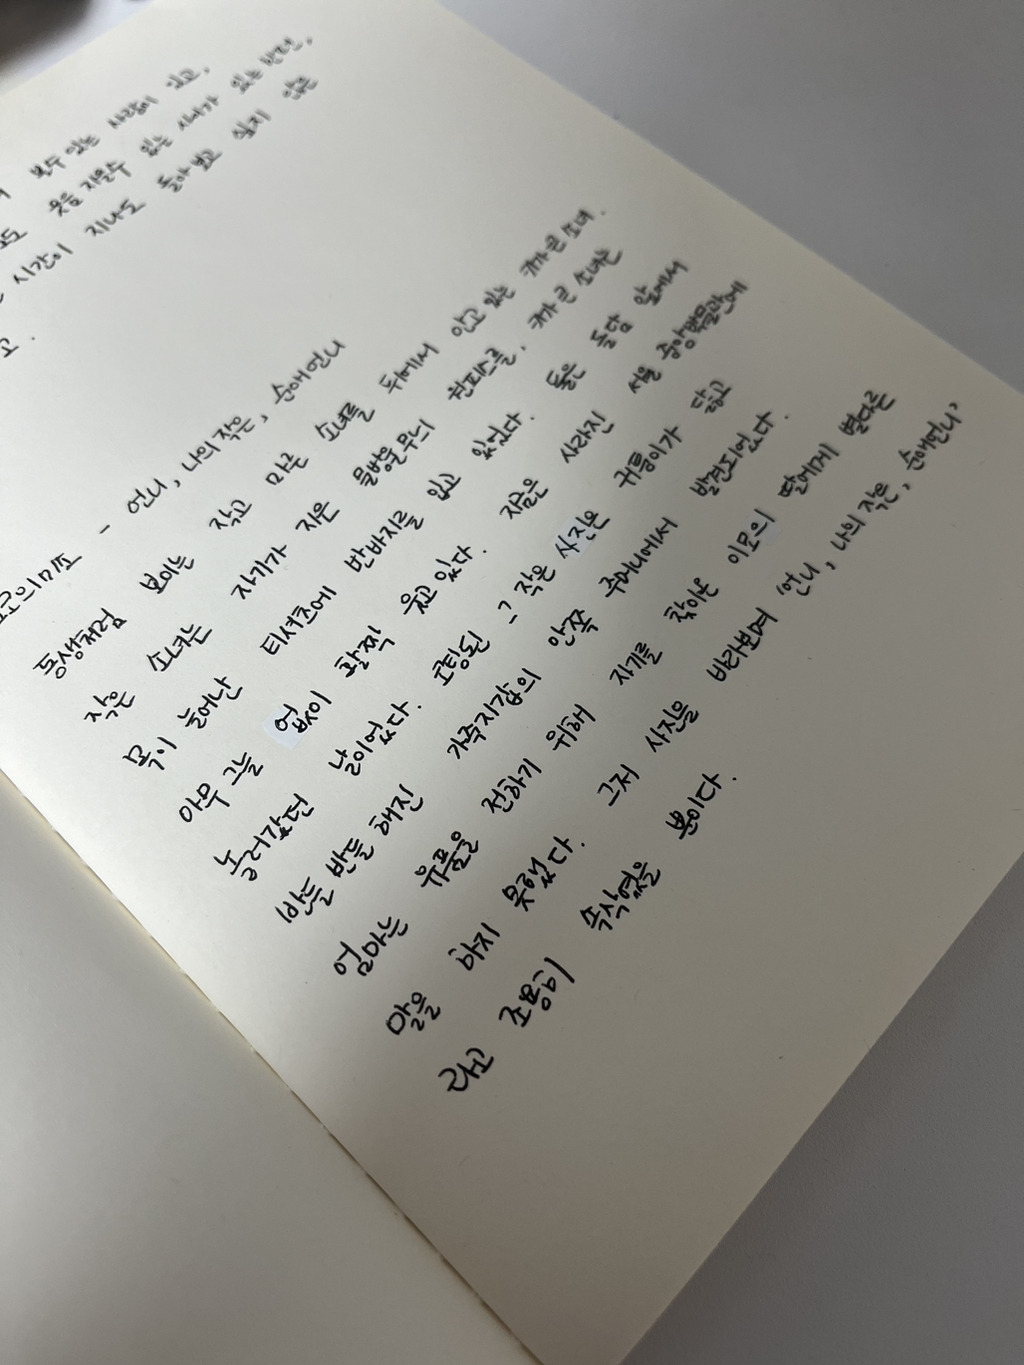 볼수 있는 사람이 있고,
웃음 지을수 있는 시기가 있는 반면,
시간이 지나도 돌아보고 싶지 않은
고.
쇼코의미소 - 언니, 나의 작은, 순애언니
동생처럼 보이는 작고 마른 소녀를 뒤에서 안고 있는 키가 큰 소녀.
작은 소녀는 자기가 지은 물방울무늬 원피스를, 키가 큰 소녀는
목이 늘어난 티셔츠에 반바지를 입고 있었다. 둘은 돌담 앞에서
아무 그늘 없이 활짝 웃고 있다. 지금은 사라진 서울 중앙박물관에
놀러갔던 날이었다. 코팅된 그 작은 사진은 귀퉁이가 닳고
반들 반들 해진 가죽지갑의 안쪽 주머니에서 발견되었다.
엄마는 유품을 전하기 위해 자기를 찾아온 이모의 딸에게 별다른
말을 하지 못했다. 그저 사진을 바라보며 '언니, 나의 작은, 순애언니'
라고 조용히 속삭였을 뿐이다.